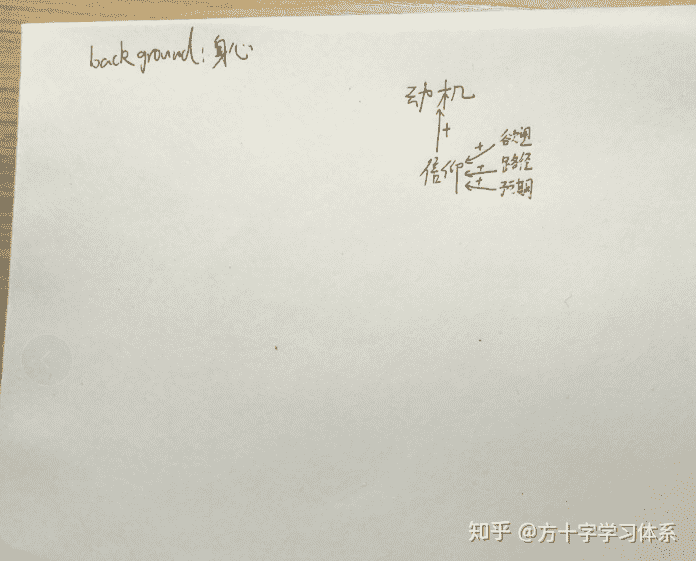 background: 身心
动机
+
信仰
+ 欲望
+ 路径
+ 预期
知乎 @方十字学习体系